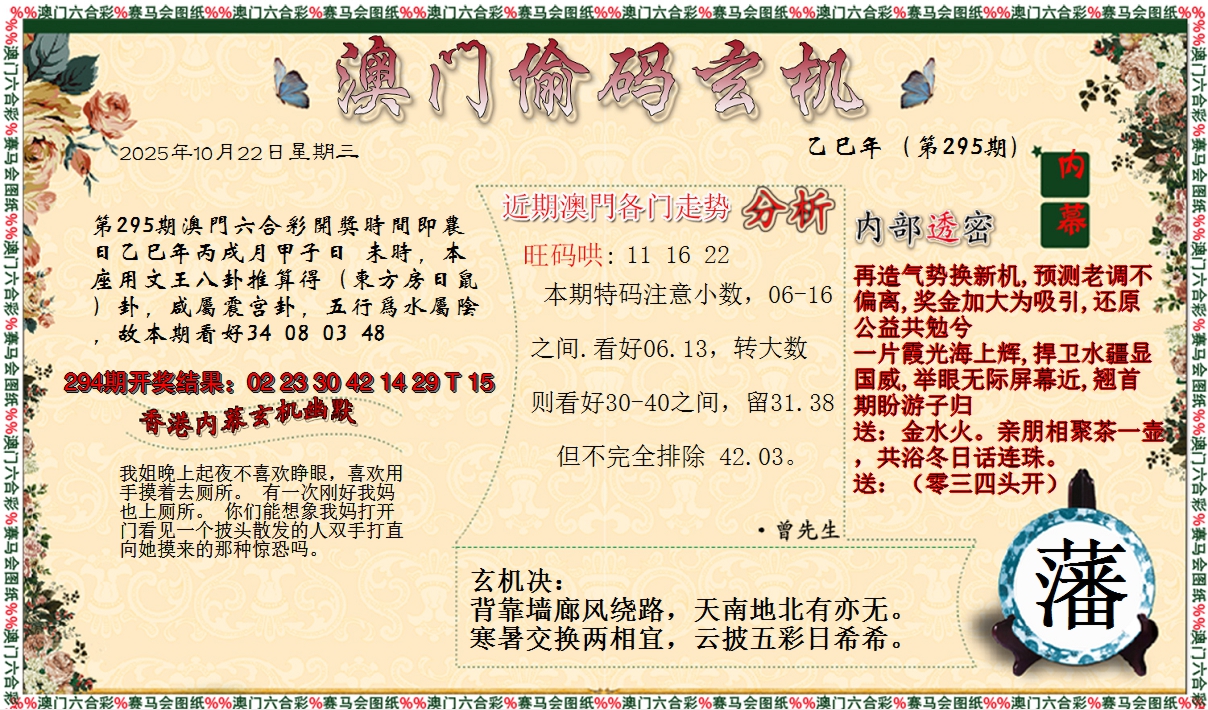 %%澳门六合彩%赛马会图纸%%澳门六合彩%赛马会图纸%%澳门六合彩%赛马会图纸%%澳门六合彩%赛马会图纸%%澳门六合彩%赛马会图纸%%澳门六合彩%赛马会图纸%%
澳门偷码玄机
2025年10月22日星期三
乙巳年（第295期）
内幕
第295期澳門六合彩開獎時間即農
日乙巳年丙戌月甲子日 未時，本
座用文王八卦推算得（東方房日鼠
）卦，咸屬震宫卦，五行爲水屬陰
，故本期看好34 08 03 48
294期开奖结果：02 23 30 42 14 29 T 15
香港内幕玄机幽默
我姐晚上起夜不喜欢睁眼，喜欢用
手摸着去厕所。 有一次刚好我妈
也上厕所。 你们能想象我妈打开
门看见一个披头散发的人双手打直
向她摸来的那种惊恐吗。
近期澳門各门走势 分析
旺码哄: 11 16 22
本期特码注意小数，06-16
之间.看好06.13，转大数
则看好30-40之间，留31.38
但不完全排除 42.03。
·曾先生
内部透密
再造气势换新机,预测老调不
偏离,奖金加大为吸引,还原
公益共勉兮
一片霞光海上辉,捍卫水疆显
国威,举眼无际屏幕近,翘首
期盼游子归
送：金水火。亲朋相聚茶一壶
，共浴冬日话连珠。
送：（零三四头开）
玄机决：
背靠墙廊风绕路，天南地北有亦无。
寒暑交换两相宜，云披五彩日希希。
藩
%%澳门六合彩%赛马会图纸%%澳门六合彩%赛马会图纸%%澳门六合彩%赛马会图纸%%澳门六合彩%赛马会图纸%%澳门六合彩%赛马会图纸%%澳门六合彩%赛马会图纸%%